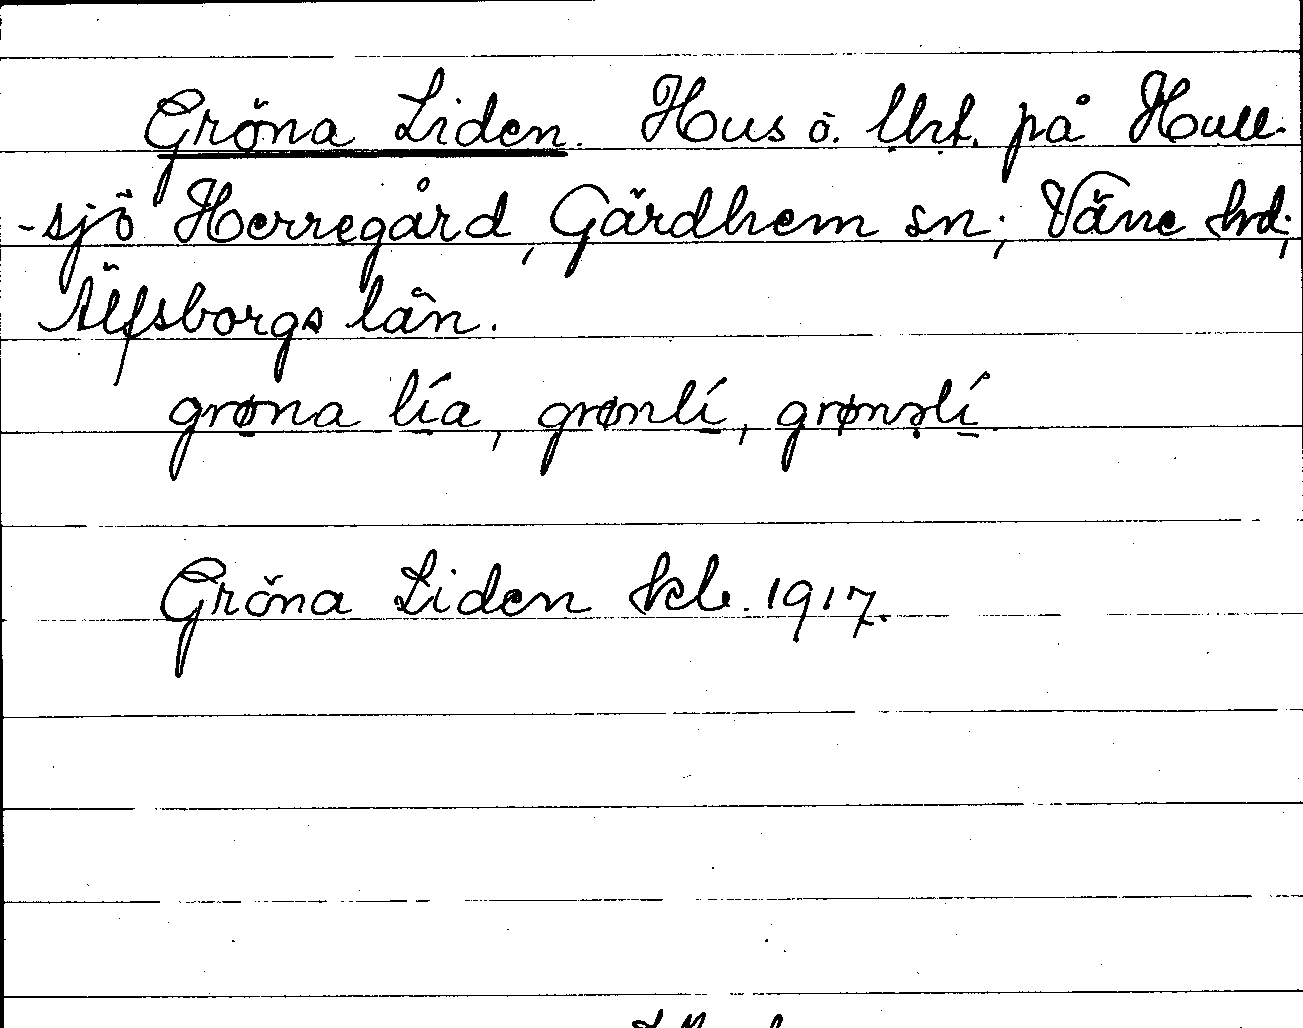 Gröna Liden. Hus o. lht. på Hull-
-sjö Herregård, Gärdhem sn; Väne hrd;
Älfsborgs län.
grøna lía, grønlí, grønəlí
Gröna Liden kb. 1917.